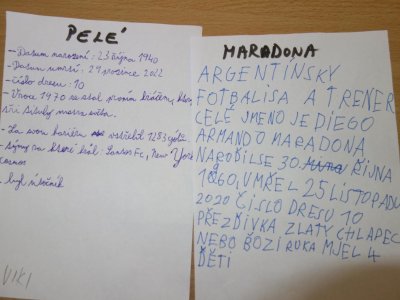 PELÉ
- Datum narození: 23 října 1940
- Datum umrtí: 29 prosince 2022
- číslo dresu: 10
- V roce 1970 se stal prvním hráčem, kter
tři tituly mistra světa.
- Za svou kariéru vstřelil 1283 gólů.
- týmy za které hrál: Santos Fc, New York
cosmos
- byl útočník
VIKI
MARADONA
ARGENTÍNSKY
FOTBALISA A TRENER
CELÉ JMENO JE DIEGO
ARMANDO MARADONA
NAROĎIL SE 30. ŘÍJNA
1960, UMŘEL 25 LISTOPADU
2020 ČÍSLO DRESU 10
PŘEZDÍVKA ZLATY CHLAPEC
NEBO BOŽÍ RUKA MJEL 4
DĚTI